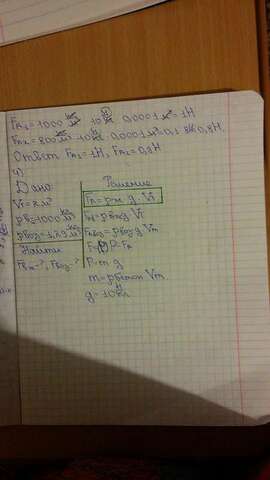 Fа₁ = 1000 кг/м³ · 10 Н/кг · 0.0001 м³ = 1Н
Fа₂ = 800 кг/м³ · 10 Н/кг · 0.0001 м³ = 0,8Н
Ответ Fа₁ = 1Н, Fа₂ = 0,8Н
Дано
Vт = 2м³
ρв = 1000 кг/м³
ρвоз = 1,29 кг/м³
Найти
Fв - ?, Fвоз - ?
Решение
Fа = ρж g · Vт
Fв = ρвод g Vт
Fвоз = ρвоз g Vт
F = P - Fа
P = m g
m = ρбетон Vт
g = 10 Н/кг